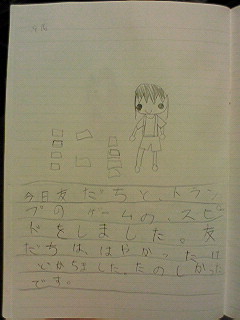 今日友だちと、トラン
プのゲームの、スピー
ドをしました。友
だちは、はやかったけ
どかちました。たのしかった
です。